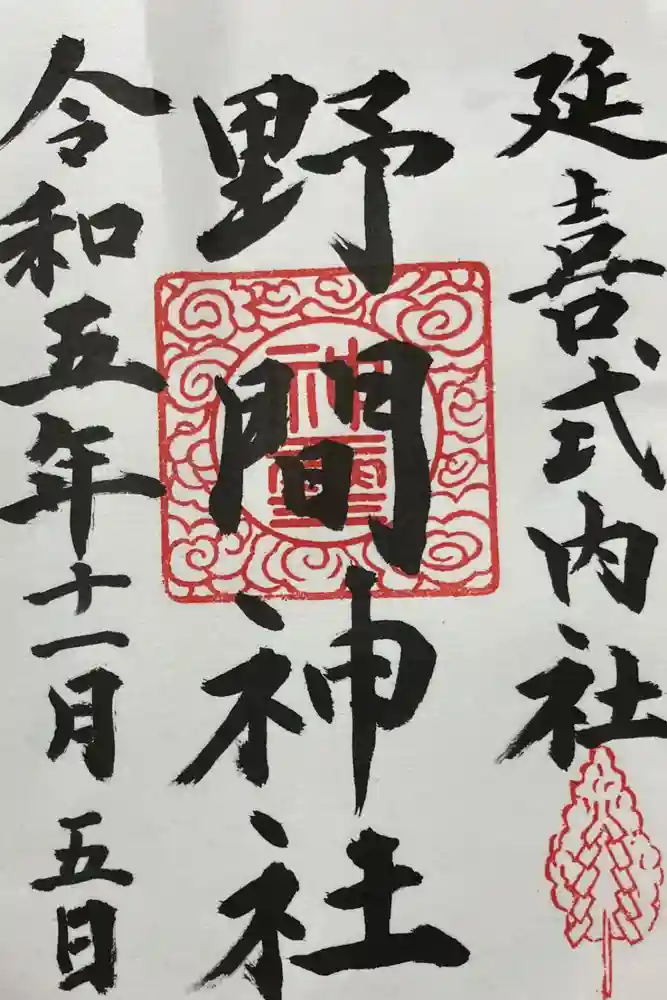 延喜式内社
野間神社
神靈
令和五年十一月五日